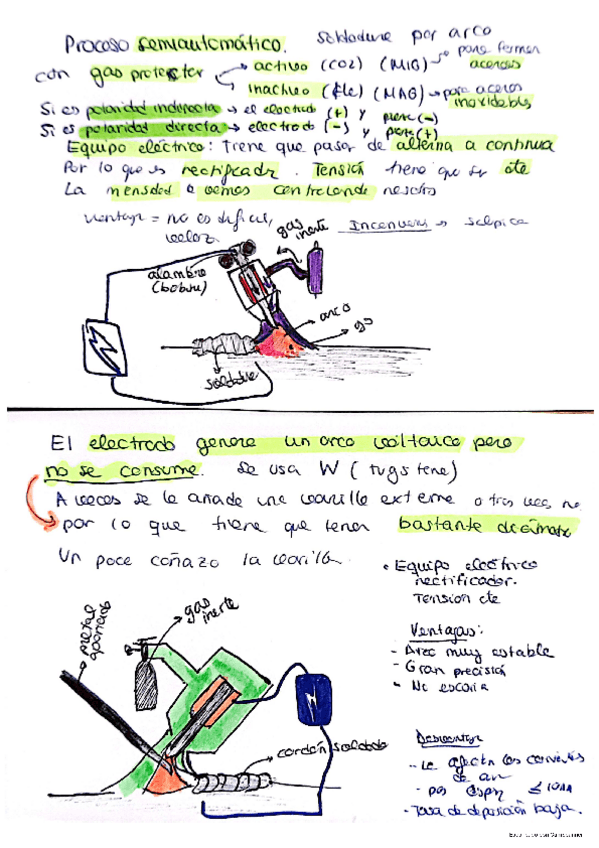 Proceso semiautomático. Soldadura por arco
con gas protector activo (CO2) (MIG) para
aceros
inactivo (He) (MAG) para aceros
inoxidables
Si es polaridad indirecta → el electrod (+) y (-)
Si es polaridad directa → electrodo (-) y (+)
Equipo eléctrico: tiene que pasar de alterna a continua
Por lo que es rectificador. Tensión tiene que ser cte
La controlando nosotros
ventaja = no es dificil,
veloz.
Inconven → salpica
gas
inerte
alambre
(bobina)
arco
gas
soldable
El electrodo genera un arco voltaico pero
no se consume. Se usa W (tugsteno)
A veces se le añade una varilla externa otras veces no
por lo que tiene que tener bastante
Un poco coñazo la varilla.
• Equipo eléctrico
rectificador.
Tensión cte
Ventajas:
- Arco muy estable
- Gran precisión
- No escoria
metal
aportado
gas
inerte
cordón soldado
Desventaja
- Le afecta las corrientes
de air
- por espe ≤ 10
- Tasa de deposición baja.